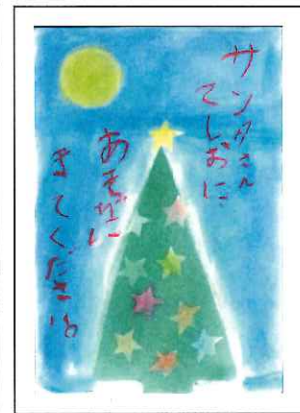 サンタさん
てしおに
あそびに
きてください